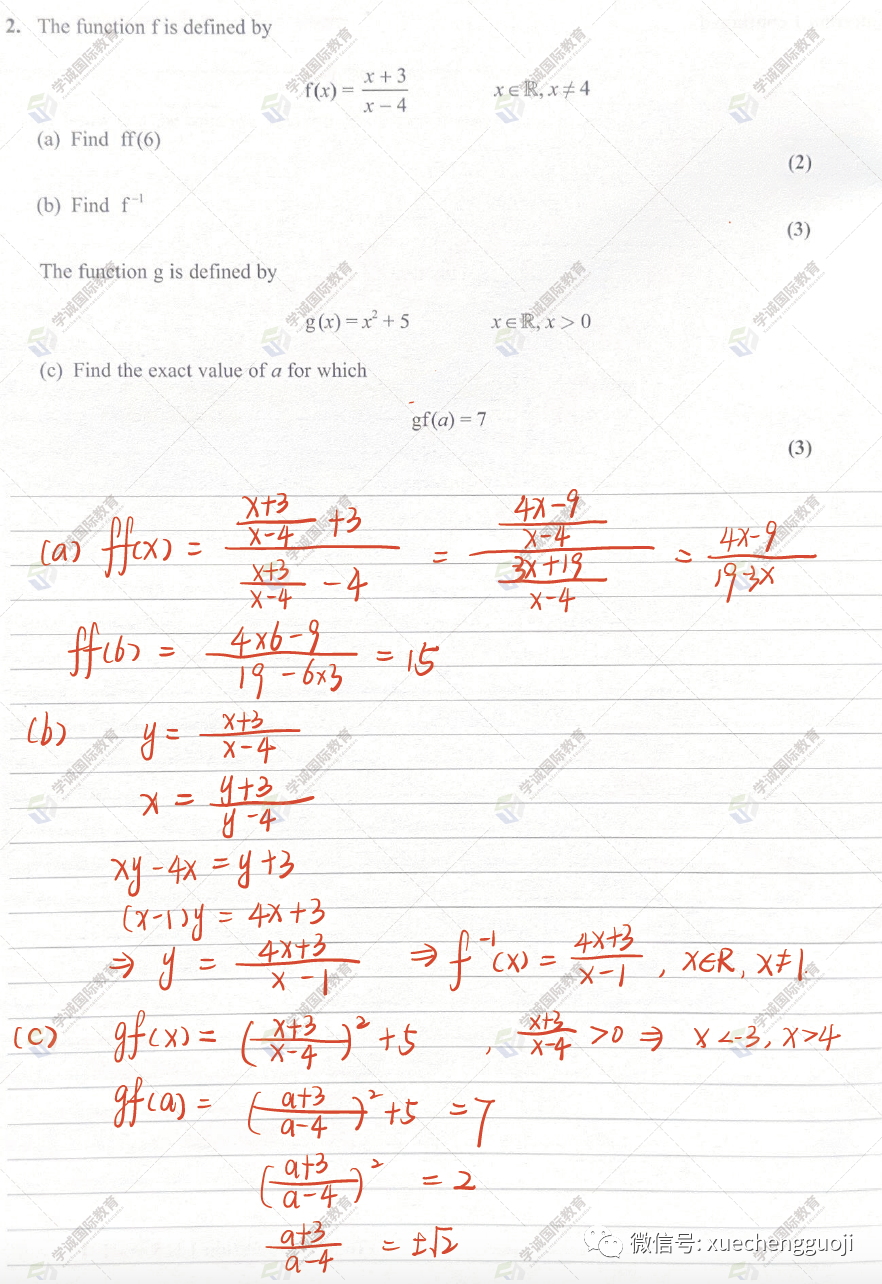 2. The function f is defined by
f(x) = \frac{x + 3}{x − 4} x ∈ ℝ, x ≠ 4
(a) Find ff(6)
(2)
(b) Find f⁻¹
(3)
The function g is defined by
g(x) = x² + 5 x ∈ ℝ, x > 0
(c) Find the exact value of a for which
gf(a) = 7
(3)
(a) ff(x) = \frac{\frac{x+3}{x-4} + 3}{\frac{x+3}{x-4} - 4} = \frac{\frac{4x-9}{x-4}}{\frac{3x+19}{x-4}} = \frac{4x-9}{19-3x}
ff(6) = \frac{4×6-9}{19-6×3} = 15
(b) y = \frac{x+3}{x-4}
x = \frac{y+3}{y-4}
xy - 4x = y + 3
(x-1)y = 4x+3
⇒ y = \frac{4x+3}{x-1} ⇒ f⁻¹(x) = \frac{4x+3}{x-1}, x∈R, x≠1.
(c) gf(x) = (\frac{x+3}{x-4})² + 5, \frac{x+3}{x-4} > 0 ⇒ x < -3, x > 4
gf(a) = (\frac{a+3}{a-4})² + 5 = 7
(\frac{a+3}{a-4})² = 2
\frac{a+3}{a-4} = ±√2
微信号: xuechengguoji
学诚国际教育